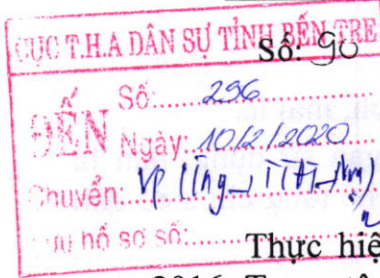 CỤC T.H.A DÂN SỰ TỈNH BẾN TRE
Số: 90
ĐẾN
Số: 296
Ngày: 10/2/2020
Chuyển: VP
Lưu hồ sơ số:
Thực hiệ
2016